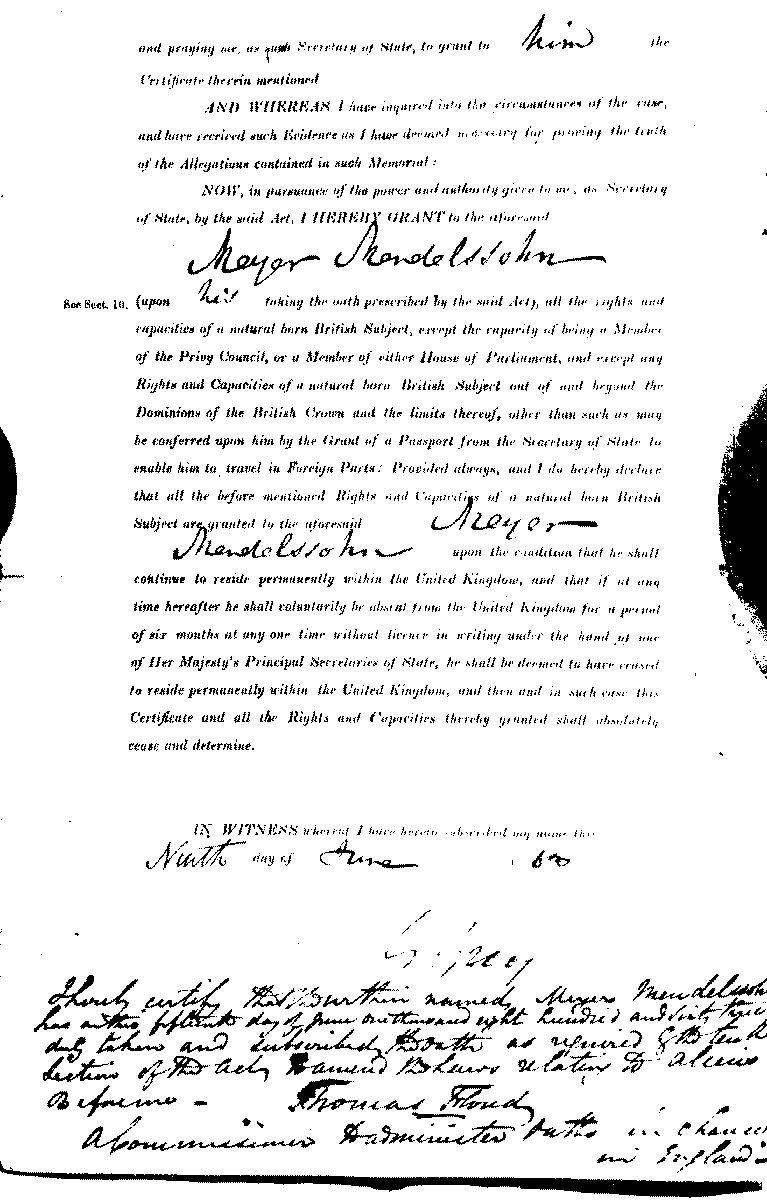 and praying me, as such Secretary of State, to grant to him the
Certificate therein mentioned
AND WHEREAS I have inquired into the circumstances of the case,
and have received such Evidence as I have deemed necessary for proving the truth
of the Allegations contained in such Memorial:
NOW, in pursuance of the power and authority given to me, as Secretary
of State, by the said Act, I HEREBY GRANT to the aforesaid
Meyer Mendelssohn
See Sect. 10. (upon his taking the oath prescribed by the said Act), all the rights and
capacities of a natural born British Subject, except the capacity of being a Member
of the Privy Council, or a Member of either House of Parliament, and except any
Rights and Capacities of a natural born British Subject out of and beyond the
Dominions of the British Crown and the limits thereof, other than such as may
be conferred upon him by the Grant of a Passport from the Secretary of State to
enable him to travel in Foreign Parts: Provided always, and I do hereby declare
that all the before mentioned Rights and Capacities of a natural born British
Subject are granted to the aforesaid Meyer
Mendelssohn upon the condition that he shall
continue to reside permanently within the United Kingdom, and that if at any
time hereafter he shall voluntarily be absent from the United Kingdom for a period
of six months at any one time without licence in writing under the hand of one
of Her Majesty's Principal Secretaries of State, he shall be deemed to have ceased
to reside permanently within the United Kingdom, and then and in such case this
Certificate and all the Rights and Capacities thereby granted shall absolutely
cease and determine.
IN WITNESS whereof I have hereto subscribed my name this
Ninth day of June 63
G Grey
I hereby certify that the within named Meyer Mendelssohn
has on this fifteenth day of June one thousand eight hundred and sixty three
duly taken and subscribed the oath as required by the tenth
Section of the Act to amend the Laws relating to Aliens
Before me - Thomas Floud
A Commissioner to administer Oaths in Chancery
in England